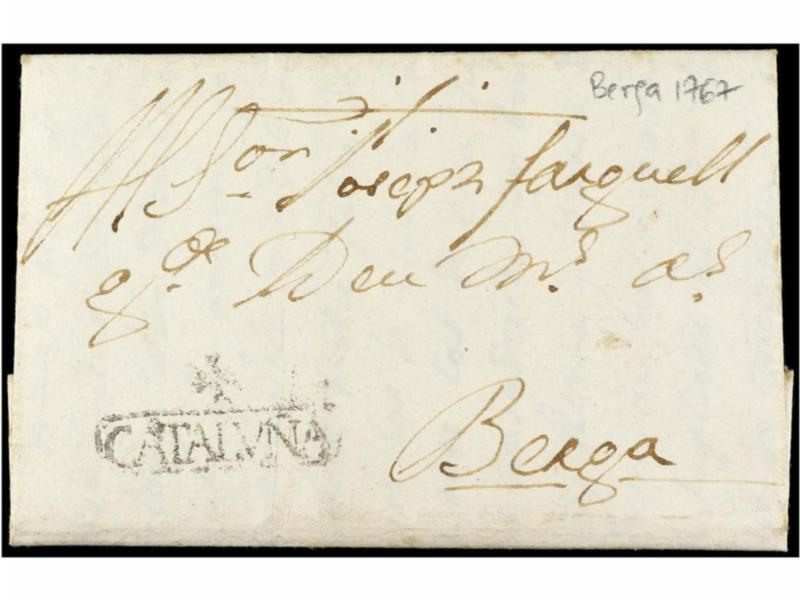 Berga 1767
Al Sor Joseph farguell
gde Deu ms as
CATALVÑA
Berga